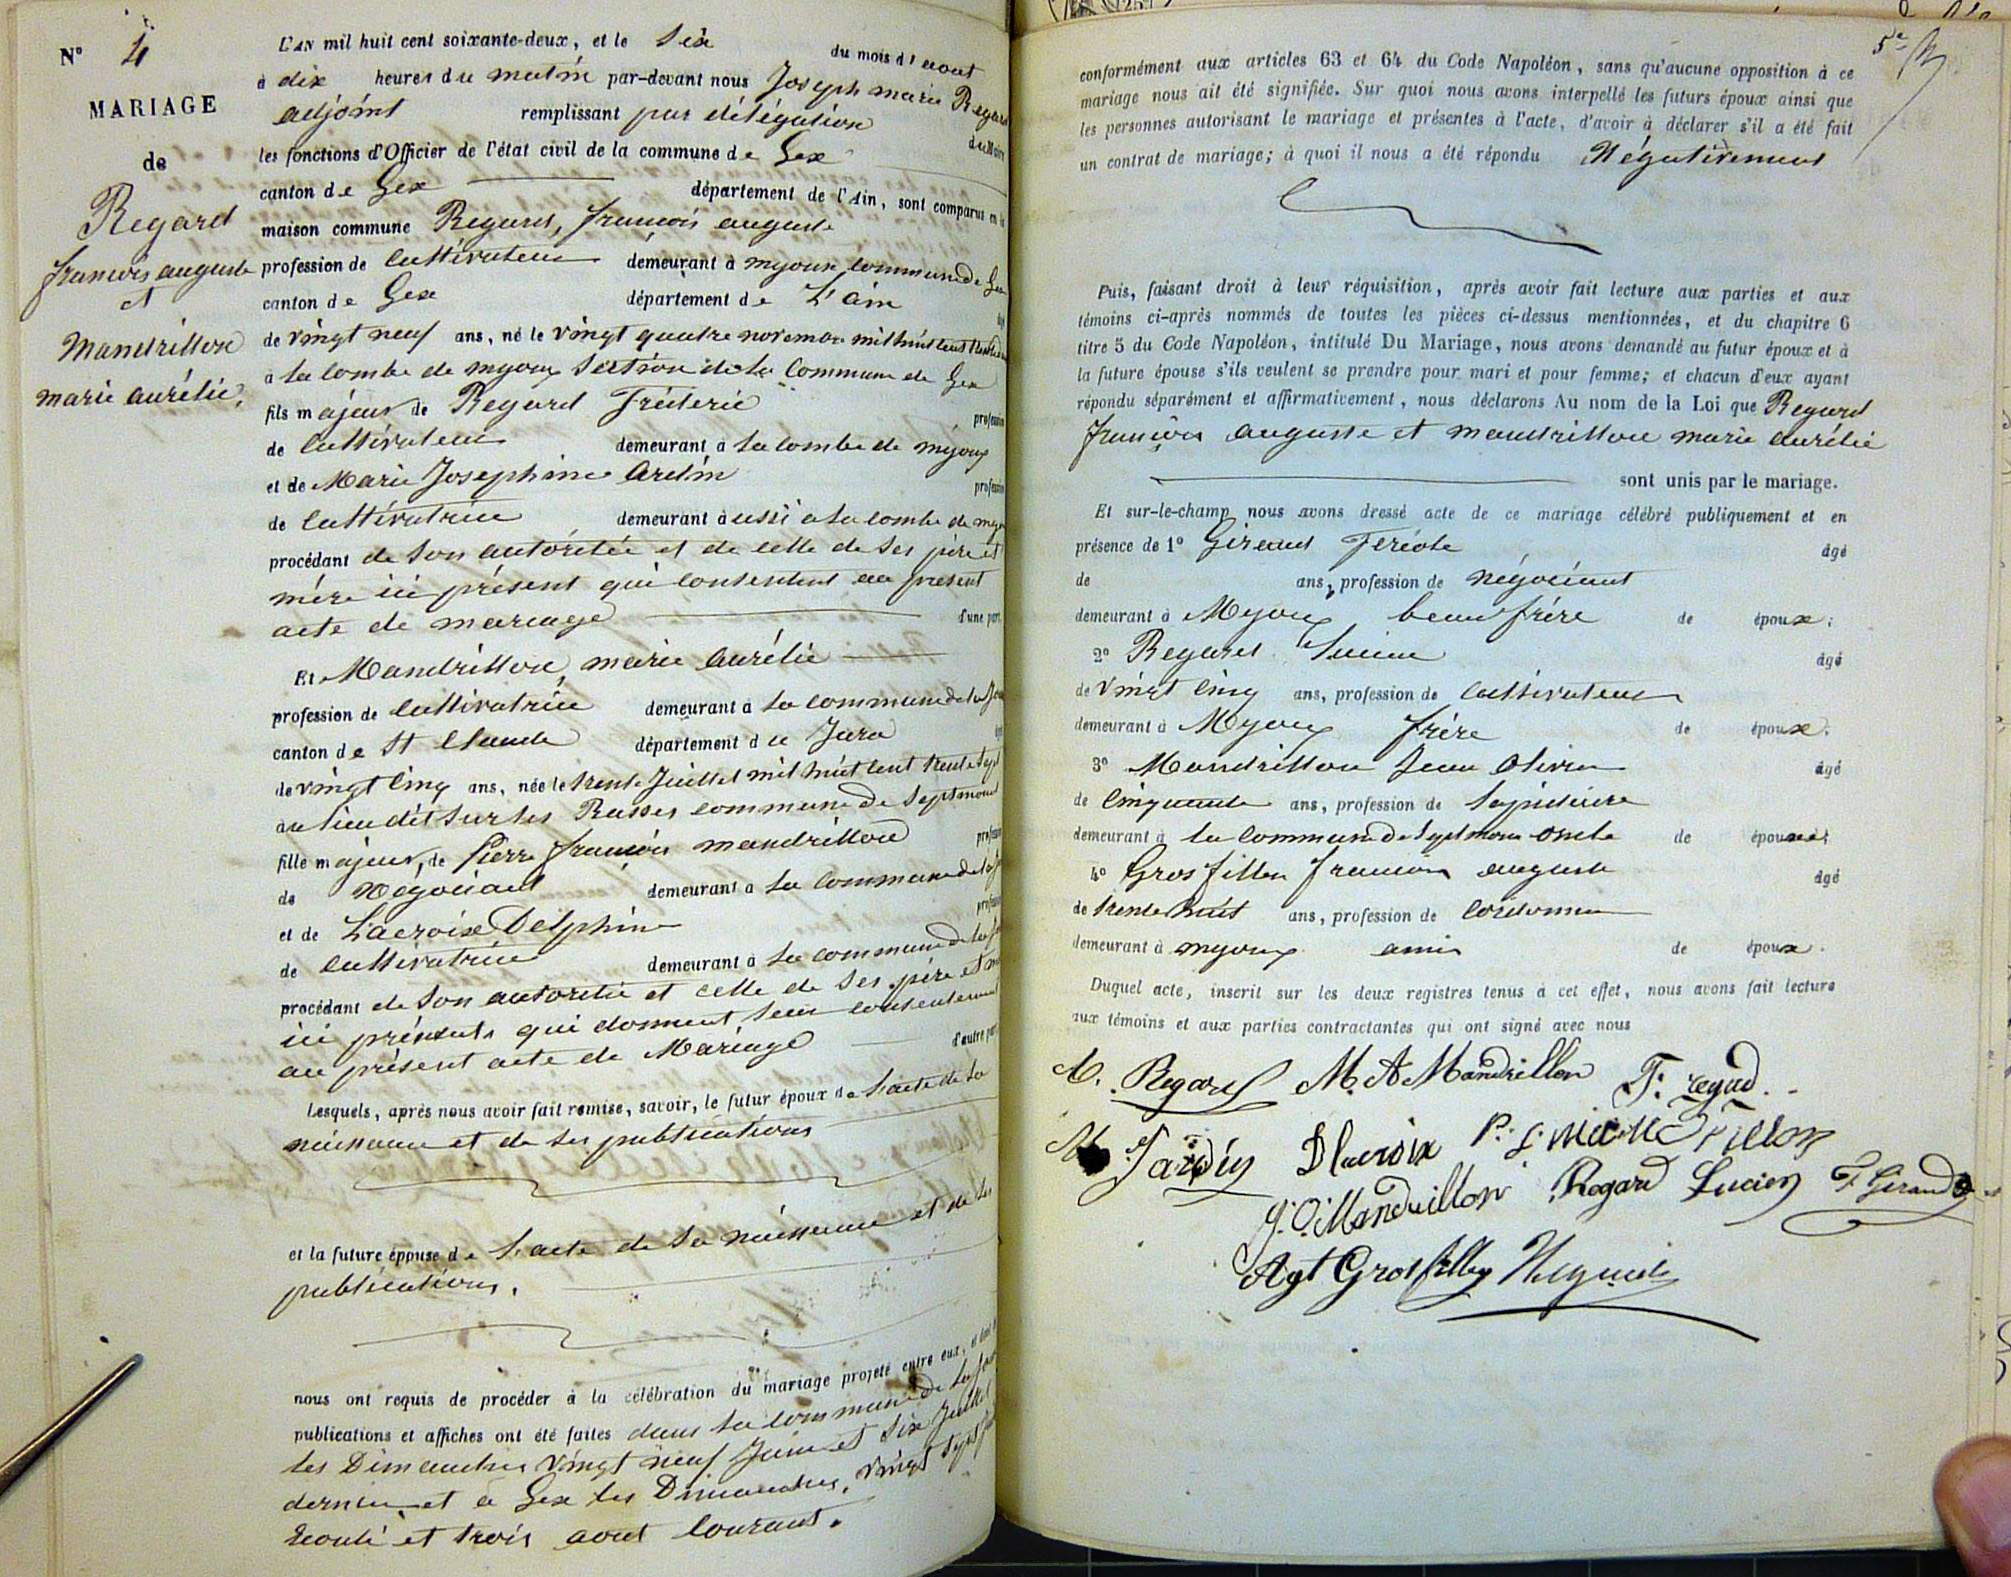 N° 4
MARIAGE
de
Regard
francois auguste
et
Mandrillon
marie aurélie,
L'AN mil huit cent soixante-deux, et le Six du mois d'aout
à dix heures du matin par-devant nous Joseph marie Regard
adjoint remplissant par délégation du Maire
les fonctions d'Officier de l'état civil de la commune de Gex
canton de Gex département de l'Ain, sont comparus en la
maison commune Regard, francois auguste
profession de Cultivateur demeurant à myoux Commune de Gex
canton de Gex département de L'ain
de vingt neuf ans, né le vingt quatre novembre mil huit cent trente
à la Combe de myoux Section de la Commune de Gex
fils majeur de Regard Fréderic profession
de Cultivateur demeurant à la Combe de mijoux
et de Marie Josephine Ardin profession
de Cultivatrice demeurant aussi a la Combe de
procédant de Son autoritée et de celle de Ses père et
mère ici présent qui Consentent au présent
acte de mariage d'une part.
Et Mandrillon, marie Aurélie
profession de Cultivatrice demeurant à la Commune de la
canton de St Claude département du Jura
de vingt Cinq ans, née le trente Juillet mil huit Cent trente Sept
au lieu dit Sur les Rasses Commune de Septmoncel
fille majeur, de Pierre francois mandrillon profession
de Négociant demeurant à la Commune de la
et de Lacroix Delphine profession
de Cultivatrice demeurant à la Commune de la
procédant de Son autoritée et celle de Ses père et
ici présents qui donnent leur Consentement
au présent acte de Mariage d'autre part
Lesquels, après nous avoir fait remise, savoir, le futur époux de L'acte de Sa
naissance et de Ses publications
et la future épouse de L'acte de Sa naissance et de Ses
publications.
nous ont requis de procéder à la célébration du mariage projeté entre eux, et dont les
publications et affiches ont été faites dans la Commune de la
les Dimanches vingt neuf Juin et Six Juillet
dernier et à Gex les Dimanches, vingt Sept
écoulé et trois aout Courant.
5e
conformément aux articles 63 et 64 du Code Napoléon, sans qu'aucune opposition à ce
mariage nous ait été signifiée. Sur quoi nous avons interpellé les futurs époux ainsi que
les personnes autorisant le mariage et présentes à l'acte, d'avoir à déclarer s'il a été fait
un contrat de mariage; à quoi il nous a été répondu Négativement
Puis, faisant droit à leur réquisition, après avoir fait lecture aux parties et aux
témoins ci-après nommés de toutes les pièces ci-dessus mentionnées, et du chapitre 6
titre 5 du Code Napoléon, intitulé Du Mariage, nous avons demandé au futur époux et à
la future épouse s'ils veulent se prendre pour mari et pour femme; et chacun d'eux ayant
répondu séparément et affirmativement, nous déclarons Au nom de la Loi que Regard
françois auguste et mandrillon marie aurélie
sont unis par le mariage.
Et sur-le-champ nous avons dressé acte de ce mariage célébré publiquement et en
présence de 1° Giraud âgé
de ans, profession de négociant
demeurant à Myoux beau frère de époux;
2° Regard Lucien âgé
de vingt Cinq ans, profession de Cultivateur
demeurant à Myoux frère de époux.
3° Mandrillon Jean Olivier âgé
de Cinquante ans, profession de lapidaire
demeurant à la Commune de Septmoncel oncle de épouse;
4° Grosfillex francois auguste âgé
de trente huit ans, profession de Cordonnier
demeurant à myoux ami de époux.
Duquel acte, inscrit sur les deux registres tenus à cet effet, nous avons fait lecture
aux témoins et aux parties contractantes qui ont signé avec nous
A. Regard M. A Mandrillon F. regad
M J ardin D lacroix P. f. Mandrillon
J. O. Mandrillon Regard Lucien F Giraud
Agt Grosfillex Regard